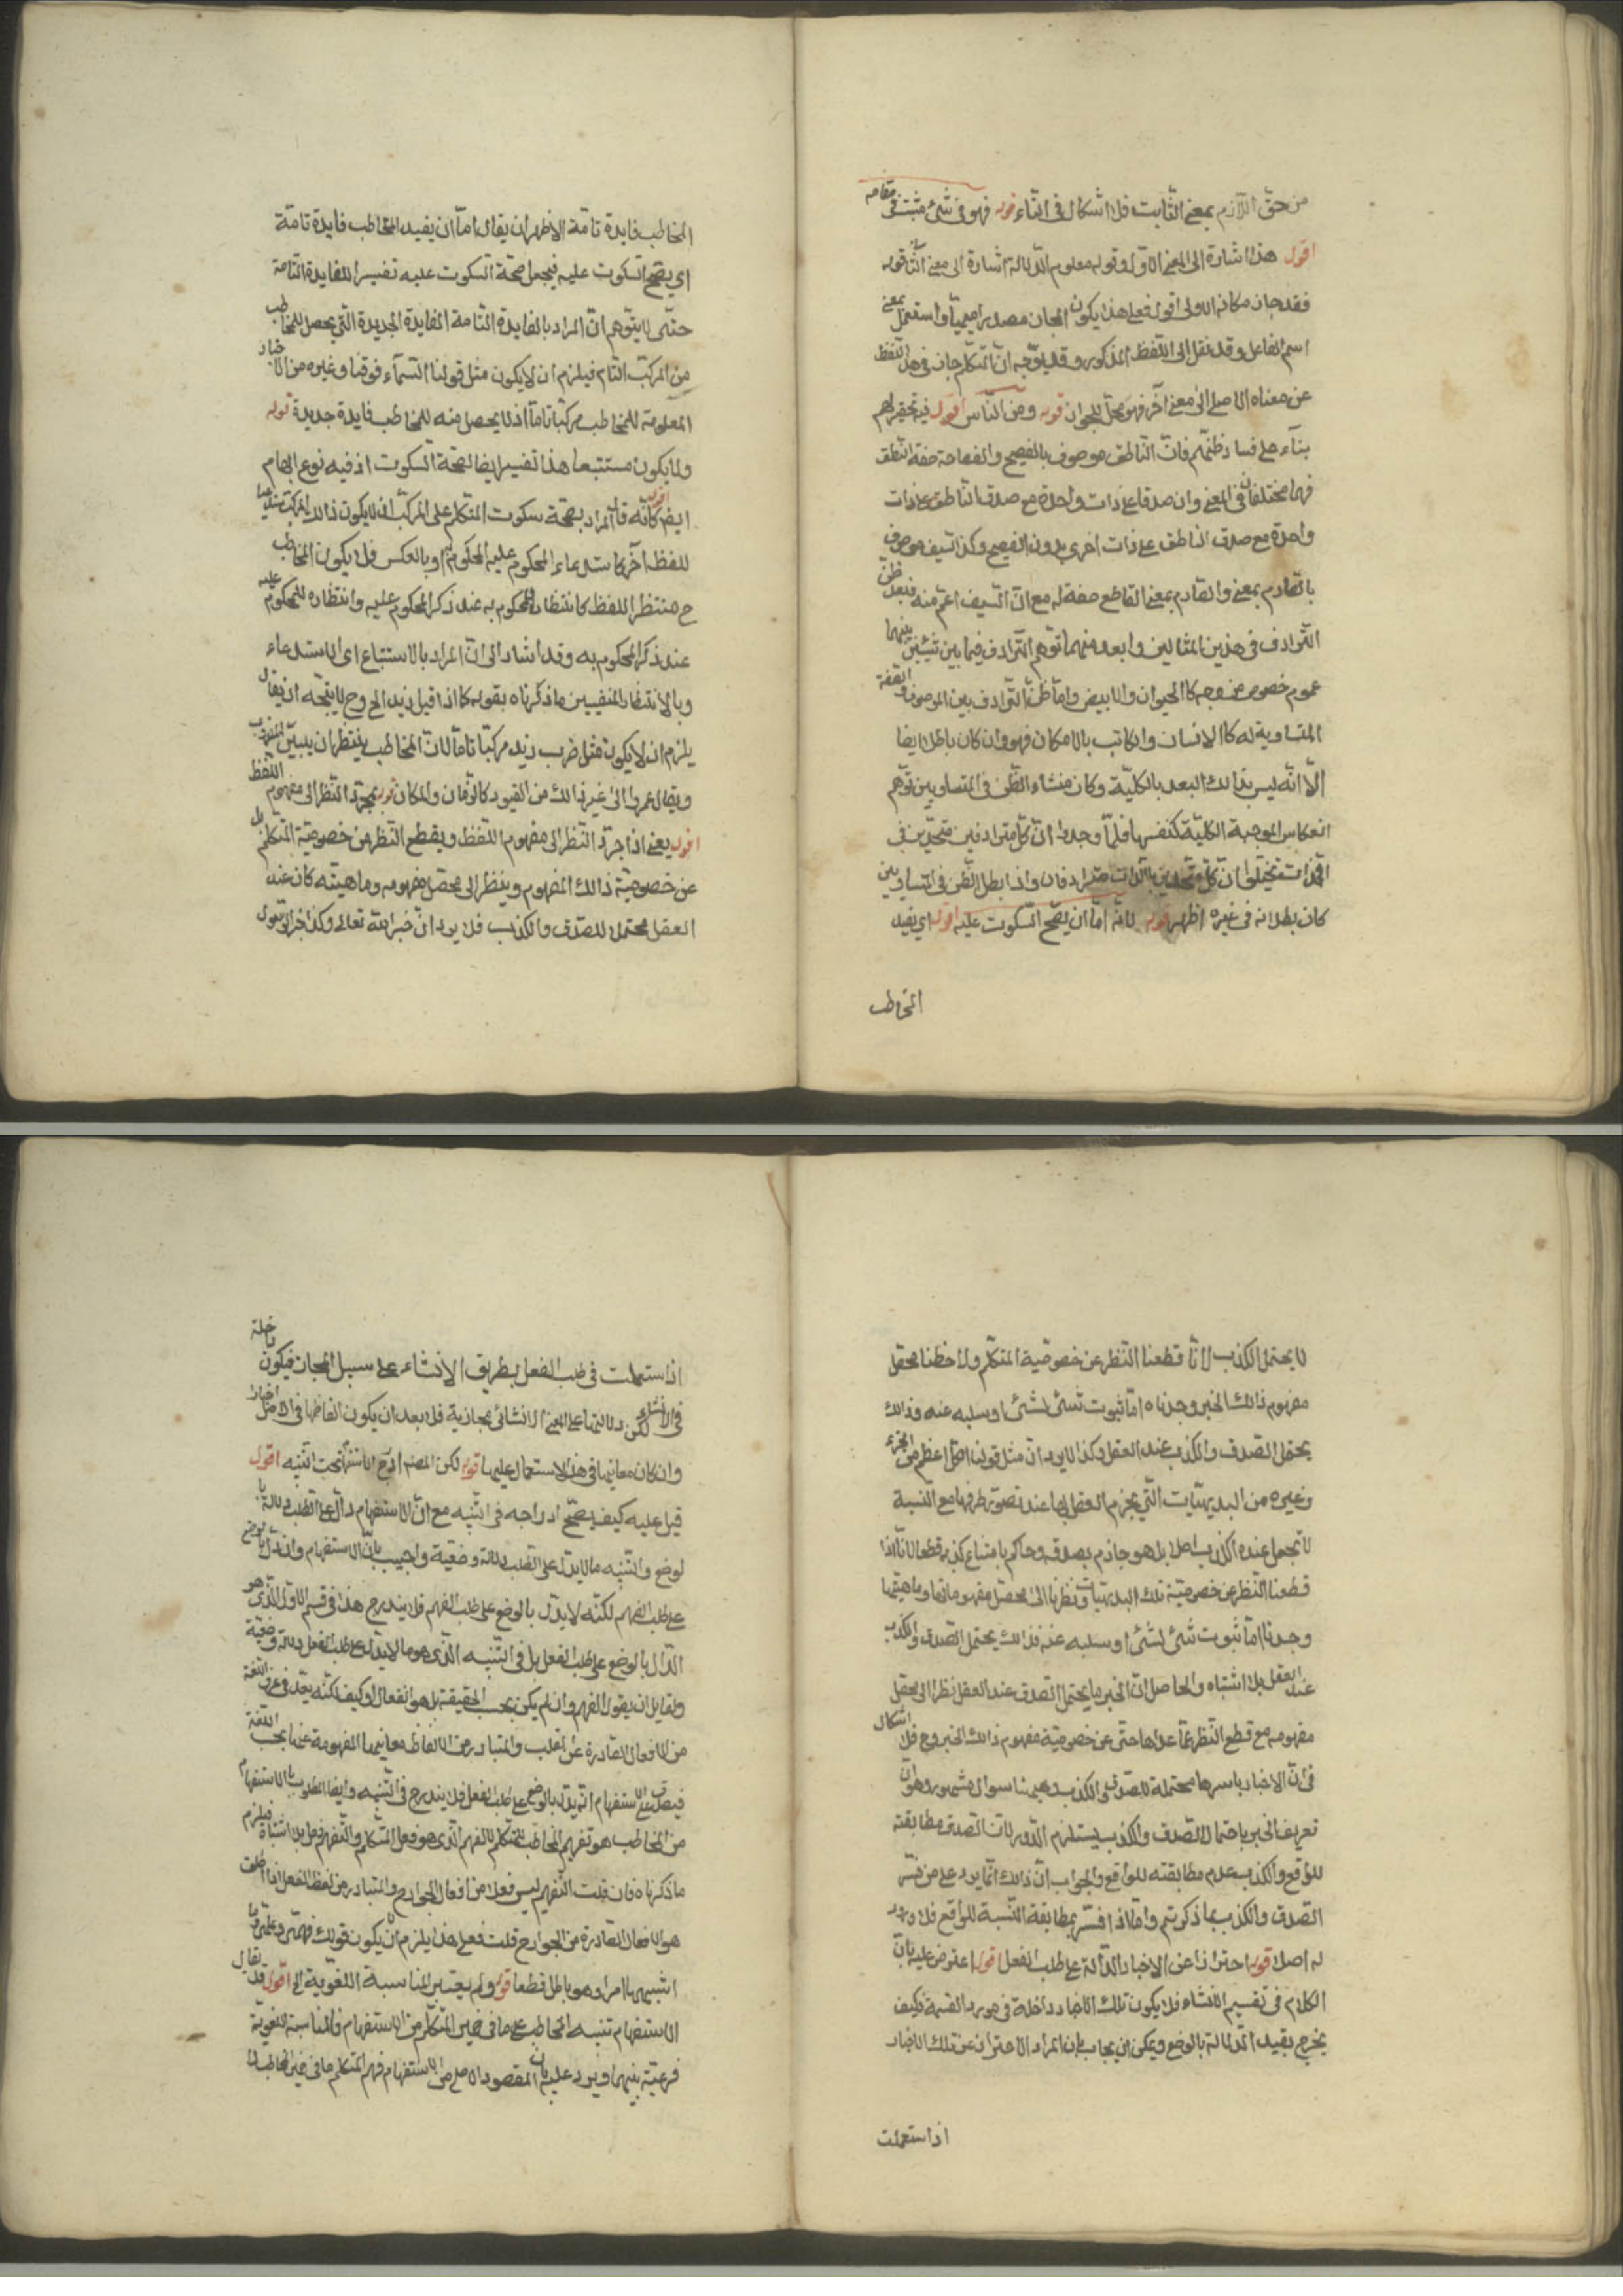 من حق اللازم بمعنى الثابت فلا اشكال فى التاء قوله فهو فى شئ مثبت فى مقامه
اقول هذا اشارة الى المعنى الاول وقوله معلوم الدلالة اشارة الى معنى الثا قوله
فقد جاز مكانه الاولى اقول فعلى هذا يكون المجاز مصدرا ميميا واستعمل بمعنى
اسم الفاعل وقد نقل الى اللفظ المذكور وقد يوجه ان المتكلم جاز فى هذا اللفظ
عن معناه الاصلى الى معنى آخر فهو محل الجواز قوله ومن الناس اقول فيه تحقير لهم
بناء على فساد ظنهم فان الناطق موصوف بالفصيح والفصاحة صفة النطق
فهما مختلفان فى المعنى وان صدقا على ذات واحدة مع صدق الناطق على ذات
واحدة مع صدق الناطق على ذات اخرى بدون الفصيح وكذا السيف موصوف
بالصارم بمعنى والصارم بمعنى القاطع صفة له مع ان السيف اعم منه فبعد ظن
الترادف فى هذين المثالين وابعد منهما توهم الترادف فيما بين شيئين بينهما
عموم خصوص من وجه كالحيوان والابيض واما ظن الترادف بين الموصوف والصفة
المتساوية له كالانسان والكاتب بالامكان فهو وان كان باطلا ايضا
الا انه ليس بذالك البعد بالكلية وكان منشاء الظن فى المتساويين توهم
انعكاس الموجبة الكلية كنفسها فلما وجدوا ان كل مترادفين متحدين فى
الذات تخيلوا ان كل متحدين بالذات مترادفان واذا بطل الظن فى المتساويين
كان بطلانه فى غيره اظهر قوله لانه اما ان يصح السكوت عليه اقول اى يفيد
المخاطب
المخاطب فايدة تامة الاظهر ان يقال اما ان يفيد المخاطب فايدة تامة
اى يصح السكوت عليه فيجعل صحة السكوت عليه تفسيرا للفايدة التامة
حتى لا يتوهم ان المراد بالفايدة التامة الفايدة الجديدة التى يحصل للمخاطب
من المركب التام فيلزم ان لا يكون مثل قولنا السماء فوقنا وغيره من الاخبار
المعلومة للمخاطب مركبا تاما اذ لا يحصل منه للمخاطب فايدة جديدة قوله
ولا يكون مستتبعا هذا تفسير ايضا لصحة السكوت اذ فيه نوع ابهام
ايضا اقول كانه قال المراد بصحة سكوت المتكلم على المركب ان لا يكون ذالك المركب مستدعيا
للفظ آخر كاستدعاء المحكوم عليه المحكوم به او بالعكس فلا يكون المخاطب
ح منتظرا للفظ كانتظاره للمحكوم به عند ذكر المحكوم عليه وانتظاره للمحكوم عليه
عند ذكر المحكوم به وقد اشار الى ان المراد بالاستتباع اى الاستدعاء
وبالانتظار المنفيين ما ذكرناه بقوله كما اذا قيل زيد الخ وح لا يتجه ان يقال
يلزم ان لا يكون مثل ضرب زيد مركبا تاما لان المخاطب ينتظر ان يبين المضروب
ويقال عمرو الى غير ذالك من القيود كالزمان والمكان قوله بمجرد النظر الى مفهوم اللفظ
اقول يعنى اذا جرد النظر الى مفهوم اللفظ ويقطع النظر عن خصوصية المتكلم بل
عن خصوصية ذالك المفهوم وينظر الى محصل مفهومه وماهيته كان عند
العقل محتملا للصدق والكذب فلا يرد ان خبر الله تعالى وكذا خبر الرسول
لا يحتمل الكذب لانا قطعنا النظر عن خصوصية المتكلم ولاحظنا محصل
مفهوم ذالك الخبر وجدناه اما ثبوت شئ لشئ او سلبه عنه وذالك
يحتمل الصدق والكذب عند العقل وكذا لا يرد ان مثل قولنا الكل اعظم من الجزء
وغيره من البديهيات التى يجزم العقل بها عند تصور طرفيها مع النسبة
لا تجعل عنده الكذب اصلا بل هو جازم بصدقه وحاكم بامتناع كذبه قطعا لانا اذا
قطعنا النظر عن خصوصية تلك البديهيات ونظرنا الى محصل مفهوماتها وماهيتها
وجدنا اما ثبوت شئ لشئ او سلبه عنه فذالك يحتمل الصدق والكذب
عند العقل بلا اشتباه والحاصل ان الخبر ما يحتمل الصدق عند العقل نظرا الى محصل
مفهومه مع قطع النظر عما عداها حتى عن خصوصية مفهوم ذالك الخبر وح فلا اشكال
فى ان الاخبار باسرها محتملة للصدق والكذب وههنا سوال مشهور وهو ان
تعريف الخبر باحتمال الصدق والكذب يستلزم الدور لان الصدق مطابقته
للواقع والكذب عدم مطابقته للواقع والجواب ان ذالك انما يرد على من فسر
الصدق والكذب بما ذكرتم واما اذا فسر بمطابقة النسبة للواقع فلا ورود
له اصلا قوله احترازا عن الاخبار الدالة على طلب الفعل اقول اعترض عليه بان
الكلام فى تقسيم الانشاء فلا يكون تلك الاخبار داخلة فى مورد القسمة فكيف
يخرج بقيد الدلالة بالوضع ويمكن ان يجاب بان المراد الاحتراز عن تلك الاخبار
اذا استعملت
اذا استعملت فى طلب الفعل بطريق الانشاء على سبيل المجاز فيكون داخلة
فى الانشاء لكن دلالتها على المعنى الانشائى مجازية فلا بعد ان يكون الفاظها فى الاصل اخبارا
وان كان معانيها فى هذا الاستعمال عليها قوله لكن المصنف ادرج الاستفهام تحت التنبيه اقول
قيل عليه كيف يصح ادراجه فى التنبيه مع ان الاستفهام دال على الطلب دلالة با
لوضع والتنبيه ما لا يدل على الطلب دلالة وضعية واجيب بان الاستفهام وان دل بالوضع
على طلب الفهم لكنه لا يدل بالوضع على طلب الفهم فلا يندرج هذا فى قسم الاول الذى هو
الدال بالوضع على طلب الفعل بل فى التنبيه الذى هو ما لا يدل على طلب الفعل دلالة وضعية
ولقايل ان يقول الفهم وان لم يكن بحسب الحقيقة بل هو انفعال او كيف لكنه يعد فى عرف اللغة
من الافعال الصادرة عن القلب والمتبادر من الالفاظ معانيها المفهومة عنها بحسب اللغة
فيصدق على الاستفهام انه يدل بالوضع على طلب الفعل فلا يندرج فى التنبيه وايضا المطلوب بالاستفهام
من المخاطب هو تفهيم المخاطب للمتكلم لا الفهم الذى هو فعل المتكلم والتفهيم فعل بلا اشتباه فيلزم
ما ذكرناه فان قلت التفهيم ليس فعلا من افعال الجوارح والمتبادر من لفظ الفعل اذا اطلق
هو الافعال الصادرة من الجوارح قلت فعلى هذا يلزم ان يكون قولك فهمنى وعلمنى وما
اشبههما امرا وهو باطل قطعا قوله ولم يعتبر المناسبة اللغوية الخ اقول قد يقال
الاستفهام تنبيه المخاطب على ما فى ضمير المتكلم من الاستفهام والمناسبة اللغوية
مرعية بينهما ويرد عليه بان المقصود الاصلى من الاستفهام فهم المتكلم ما فى ضمير المخاطب لا